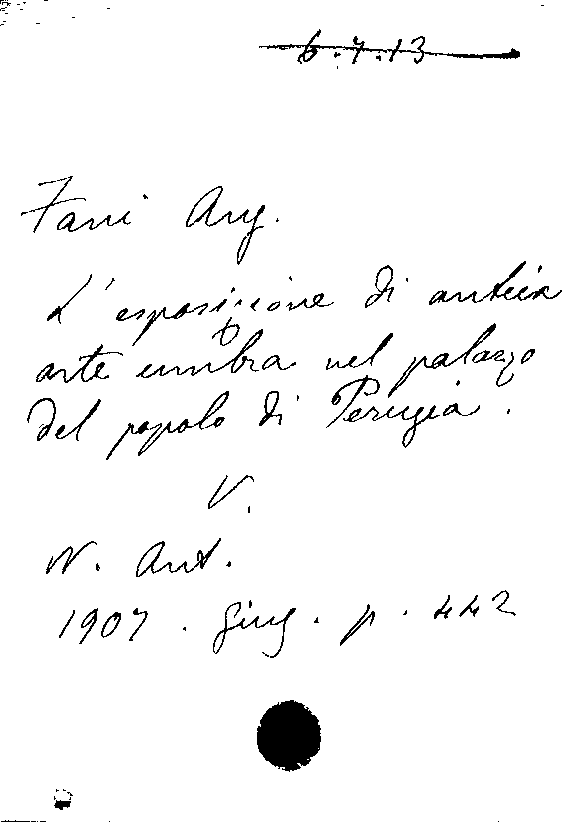 6.7.13
Fani Aug.
L'esposizione di antica
arte umbra nel palazzo
del popolo di Perugia.
V.
N. Ant.
1907. Giug. p. 442